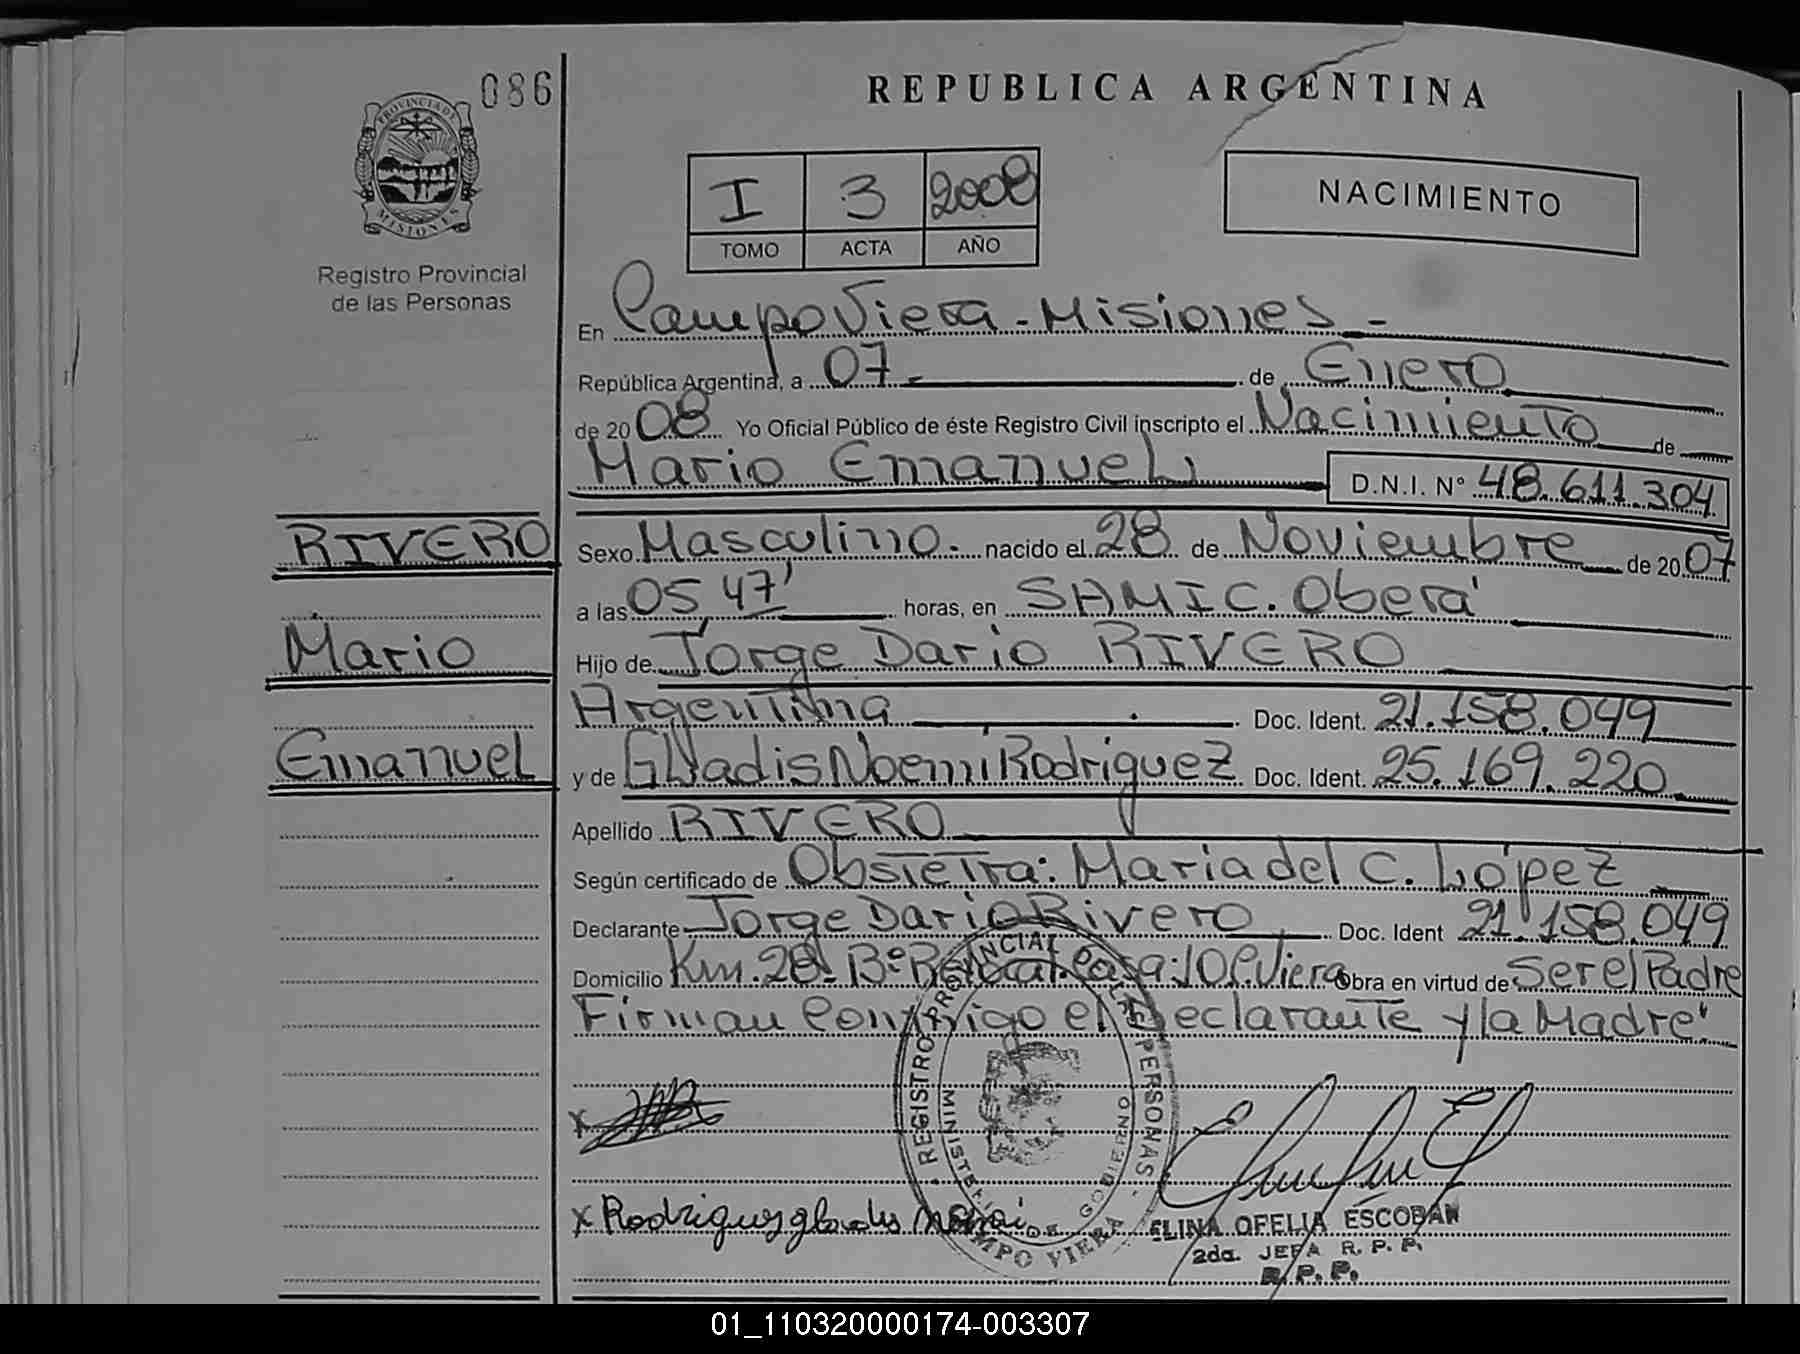 086
REPUBLICA ARGENTINA
PROVINCIA DE MISIONES
Registro Provincial
de las Personas
I 3 2008
TOMO ACTA AÑO
NACIMIENTO
En Campo Viera - Misiones -
República Argentina, a 07 de Enero
de 2008 Yo Oficial Público de éste Registro Civil inscripto el Nacimiento de
Mario Emanuel D.N.I. N° 48.611.304
RIVERO
Sexo Masculino. nacido el 28 de Noviembre de 2007
a las 05 47' horas, en SAMIC. Oberá
Mario
Hijo de Jorge Dario RIVERO
Argentina Doc. Ident. 21.158.049
Emanuel
y de GLadis Noemi Rodriguez Doc. Ident. 25.169.220
Apellido RIVERO
Según certificado de Obstetra: Maria del C. López
Declarante Jorge Dario Rivero Doc. Ident 21.158.049
Domicilio Km. 28. B° Casa: 10 C. Viera Obra en virtud de Ser el Padre
Firman Conmigo el Declarante y la Madre.
x
x Rodriguez
REGISTRO PROVINCIAL DE LAS PERSONAS
MINISTERIO DE GOBIERNO
CAMPO VIERA
ELINA OFELIA ESCOBAR
2da. JEFA R. P. P.
R. P. P.
01_110320000174-003307